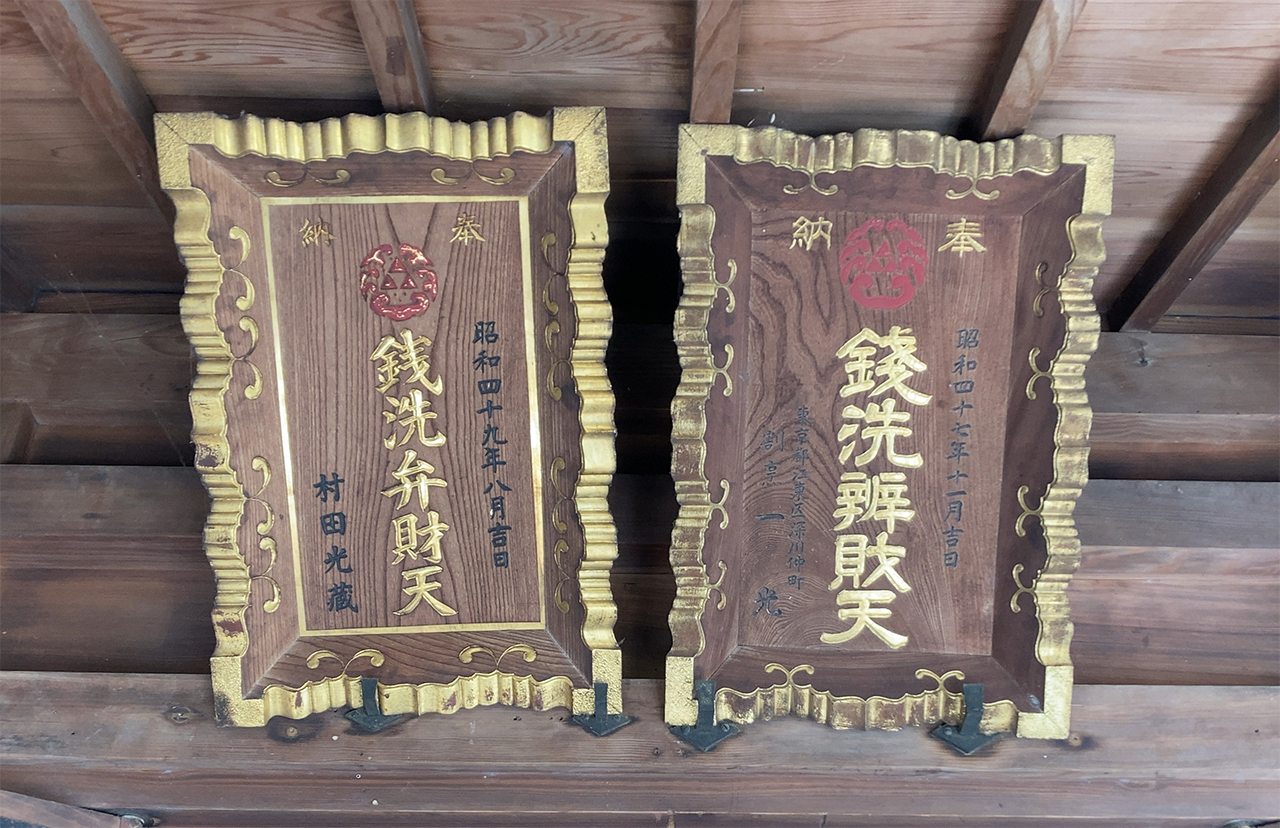 奉納
昭和四十七年十一月吉日
銭洗辨財天
東京都江東区深川仲町
割烹 一光
奉納
昭和四十九年八月吉日
銭洗弁財天
村田光蔵